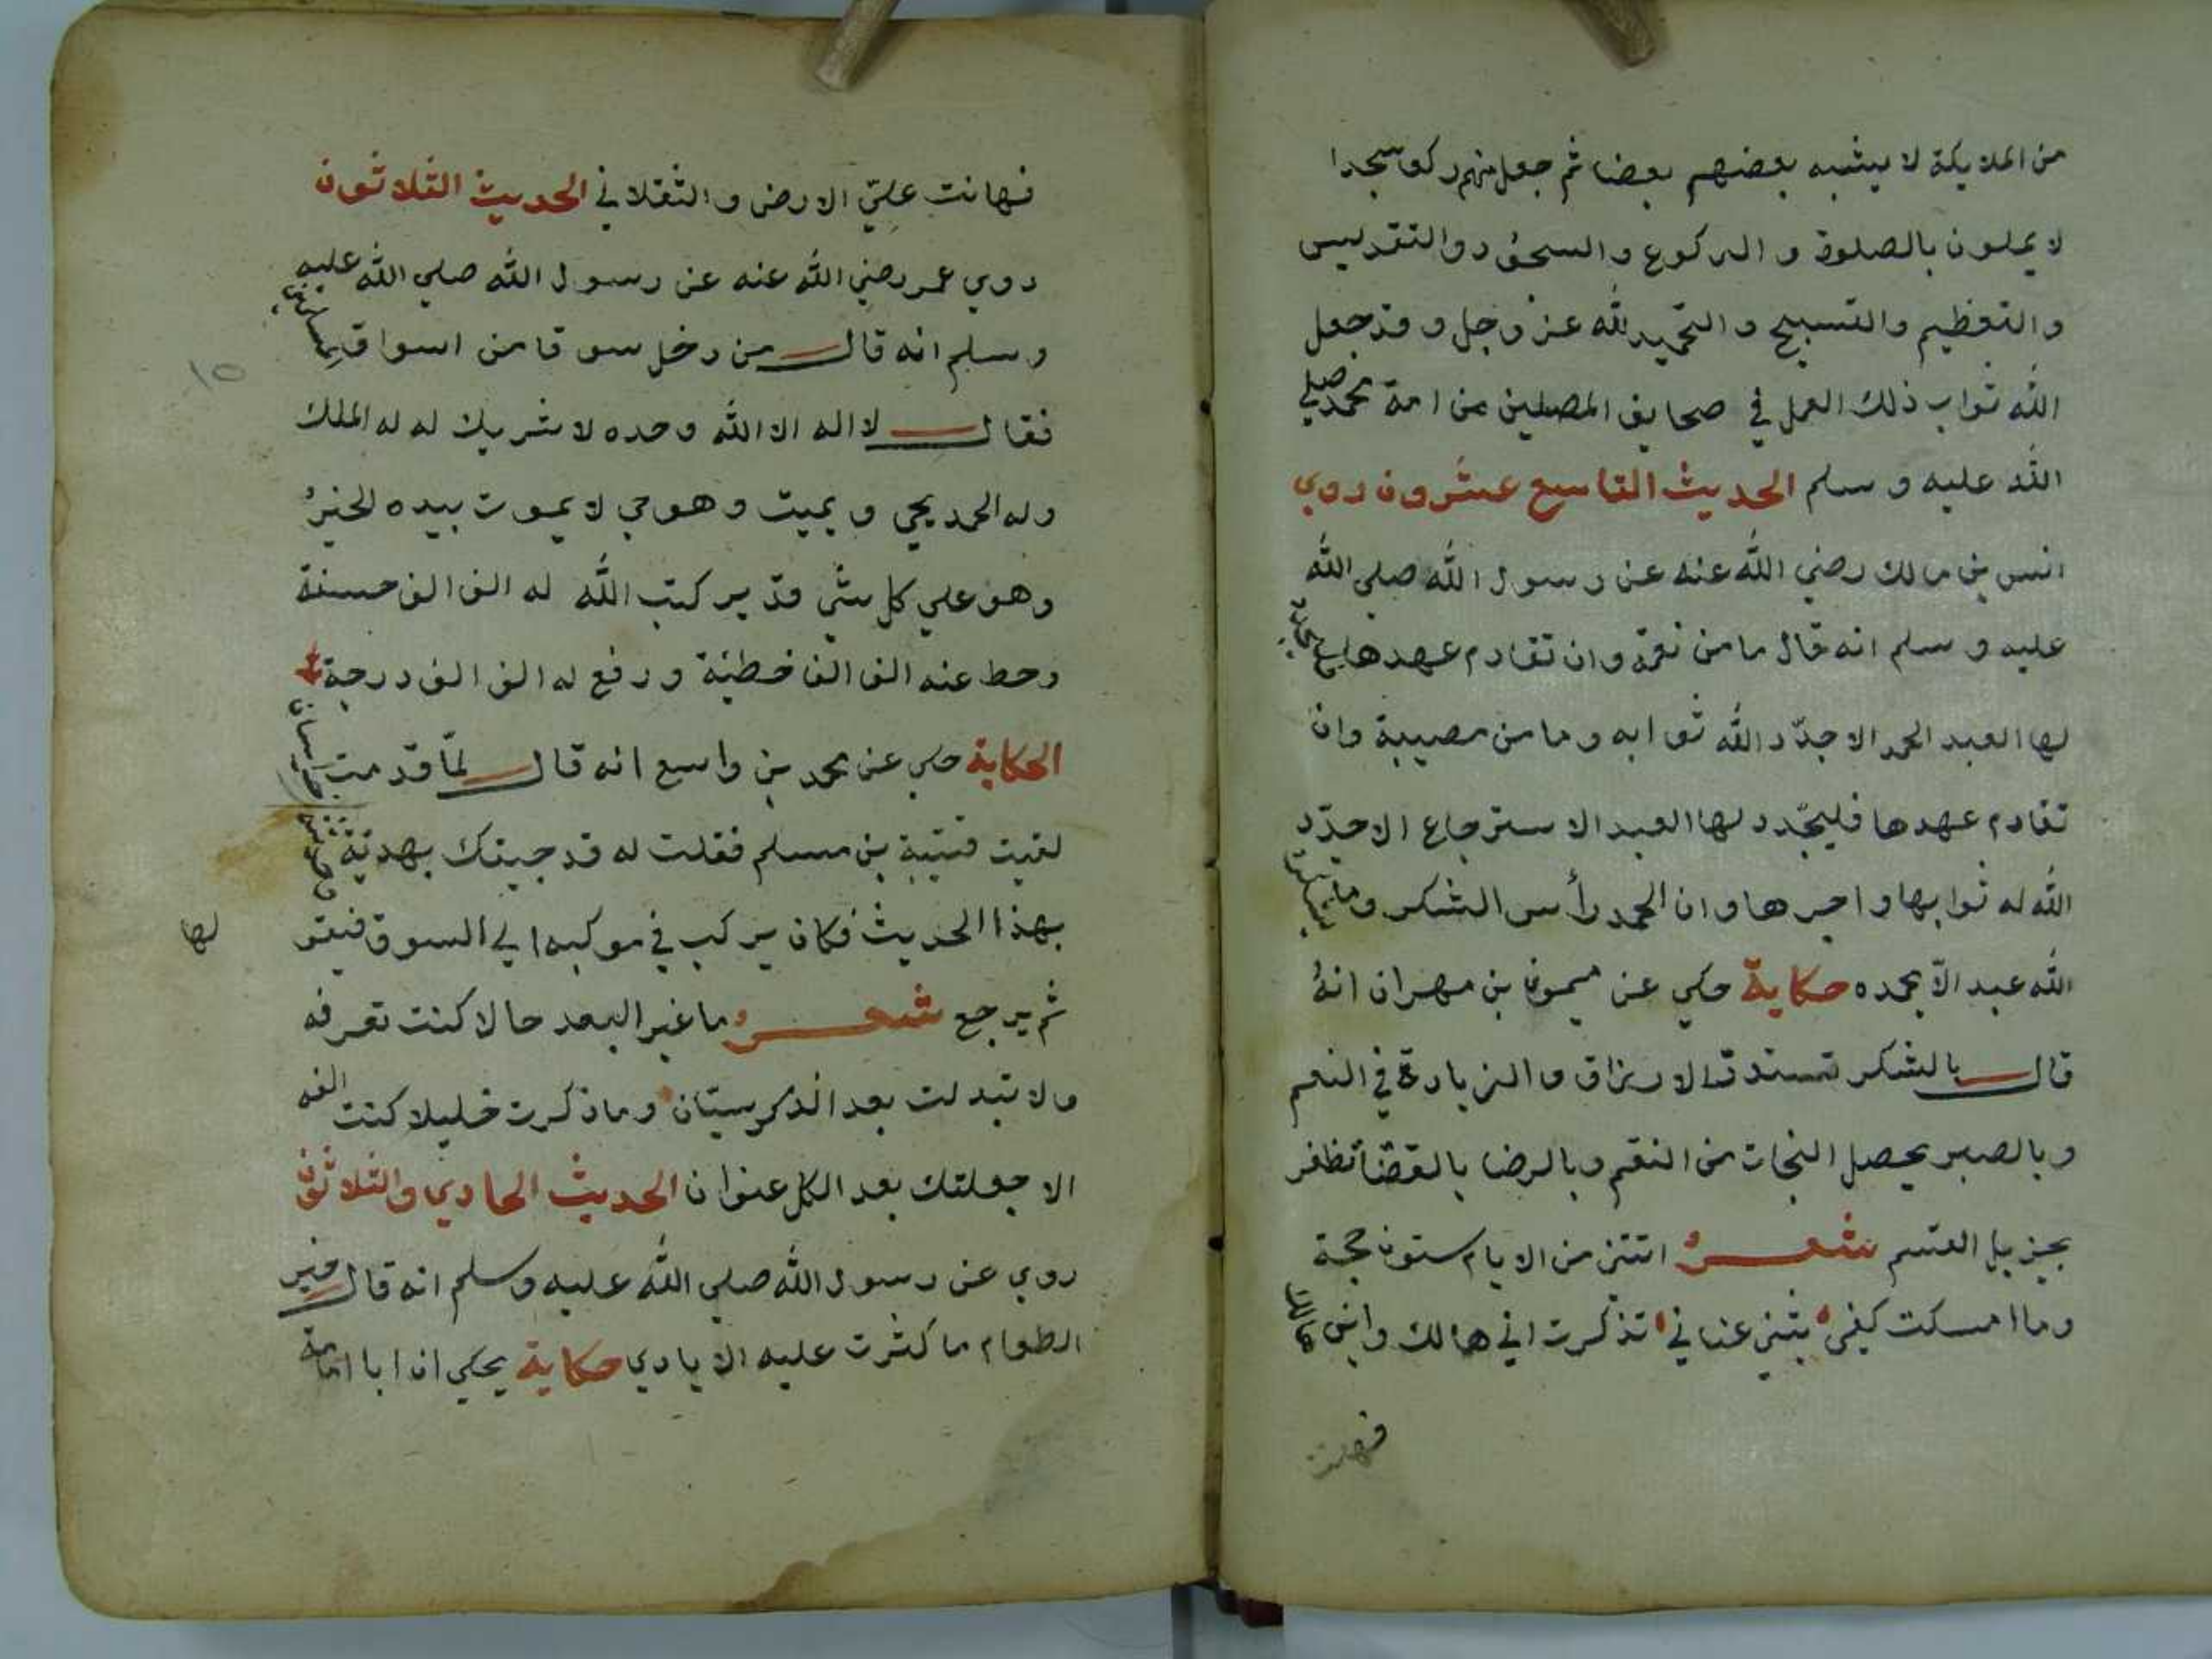 من الملايكة لا يشبه بعضهم بعضا ثم جعل منهم ركعا سجدا
لا يملون بالصلوة و الركوع و السجود و التقديس
و التعظيم والتسبيح و التحميد لله عز و جل و قد جعل
الله ثواب ذلك العمل في صحايف المصلين من امة محمد صلي
الله عليه و سلم الحديث التاسع عشرون روي
انس بن مالك رضي الله عنه عن رسول الله صلي الله
عليه و سلم انه قال ما من نعمة وان تقادم عهدها يجدد
لها العبد الحمد الا جدّد الله ثوابه و ما من مصيبة وان
تقادم عهدها فليجدد لها العبد الاسترجاع الا جدّد
الله له ثوابها و اجرها و ان الحمد رأس الشكر و ما شكرت
الله عبد الّا بحمده حكاية حكي عن ميمون بن مهران انهُ
قال بالشكر تستدق الارزاق و الزيادة في النعم
و بالصبر يحصل النجات من النقم و بالرضا بالقضا تظفر
بجزيل القسم شعر اتتني من الايام ستون حجة
و ما امسكت كفي بثني عناني تذكرت اني هالك وابن هالك
فهانت
فهانت عليّ الارض و الثقلاني الحديث الثلاثون
روي عمر رضي الله عنه عن رسول الله صلي الله عليه
و سلم انه قال من دخل سوقا من اسواق المسلمين
فقال لا اله الا الله وحده لا شريك له له الملك
و له الحمد يحي و يميت و هو حي لا يموت بيده الخيرُ
و هو علي كل شي قدير كتب الله له الف الف حسنة
و حط عنه الف الف خطئة و رفع له الف الف درجة
الحكاية حكي عن محمد بن واسع انه قال لمّا قدمت خراسان
لقيت قتيبة بن مسلم فقلت له قد جيتك بهدية وحدثته
بهذا الحديث فكان يركب في موكبه الي السوق فيقو لها
ثم يرجع شعر ما غير البعد حالا كنت تعرفه
و لا تبدلت بعد الذكر سيّان و ما ذكرت خليلا كنت الفه
الا جعلتك بعد الكل عنوان الحديث الحادي والثلاثون
روي عن رسول الله صلي الله عليه و سلم انه قال خير
الطعام ما كثرت عليه الايادي حكاية يحكي ان ابا امامة
١٥